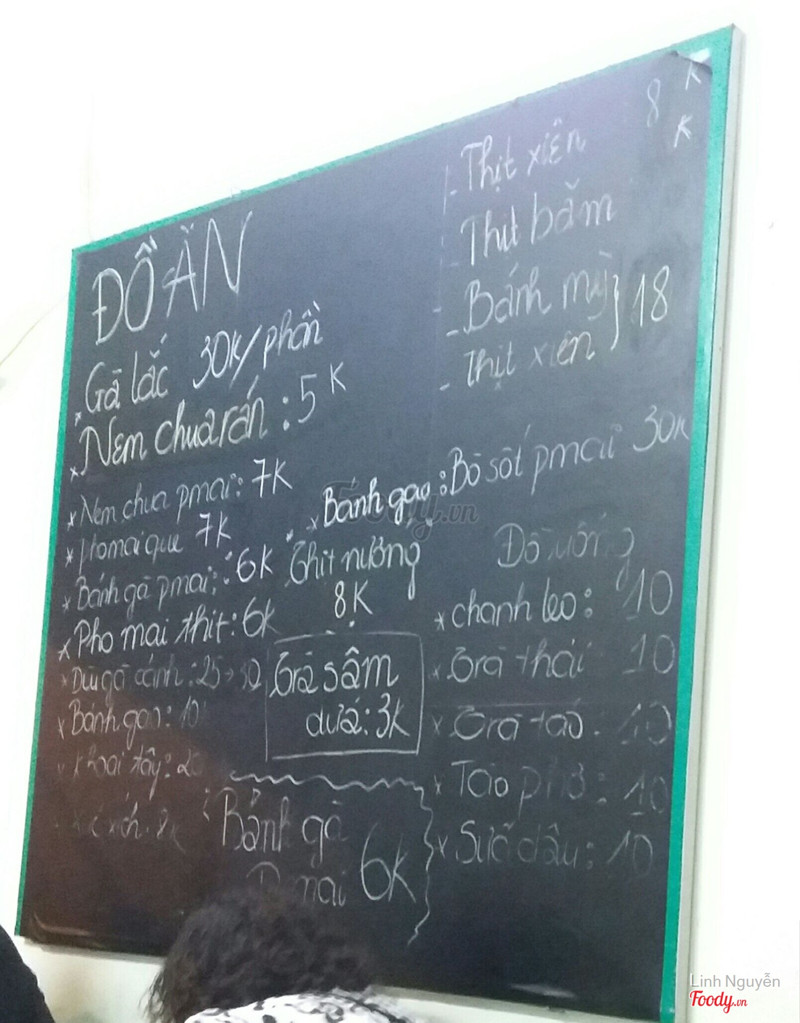 ĐỒ ĂN
* Gà lắc 30K/phần
* Nem chua rán : 5K
* Nem chua pmai : 7K
* phomai que 7K
* Bánh gà pmai : 6K
* Pho mai thịt : 6K
* Đùi gà cánh : 25 → 30
* Bánh gạo : 10
* Khoai tây : 20
8K
Bánh gà
P mai 6K
- Thịt xiên 8K
K
- Thịt băm
- Bánh mỳ } 18
- Thịt xiên
* Bánh gạo : Bò sốt pmai 30K
* Thịt nướng
8K
Trà sâm
dứa : 3K
Đồ uống
* chanh leo : 10
* Trà thái 10
* Trà táo . 10
* Tào phớ : 10
* Sữa dâu : 10
Foody.vn
Linh Nguyễn
Foody.vn